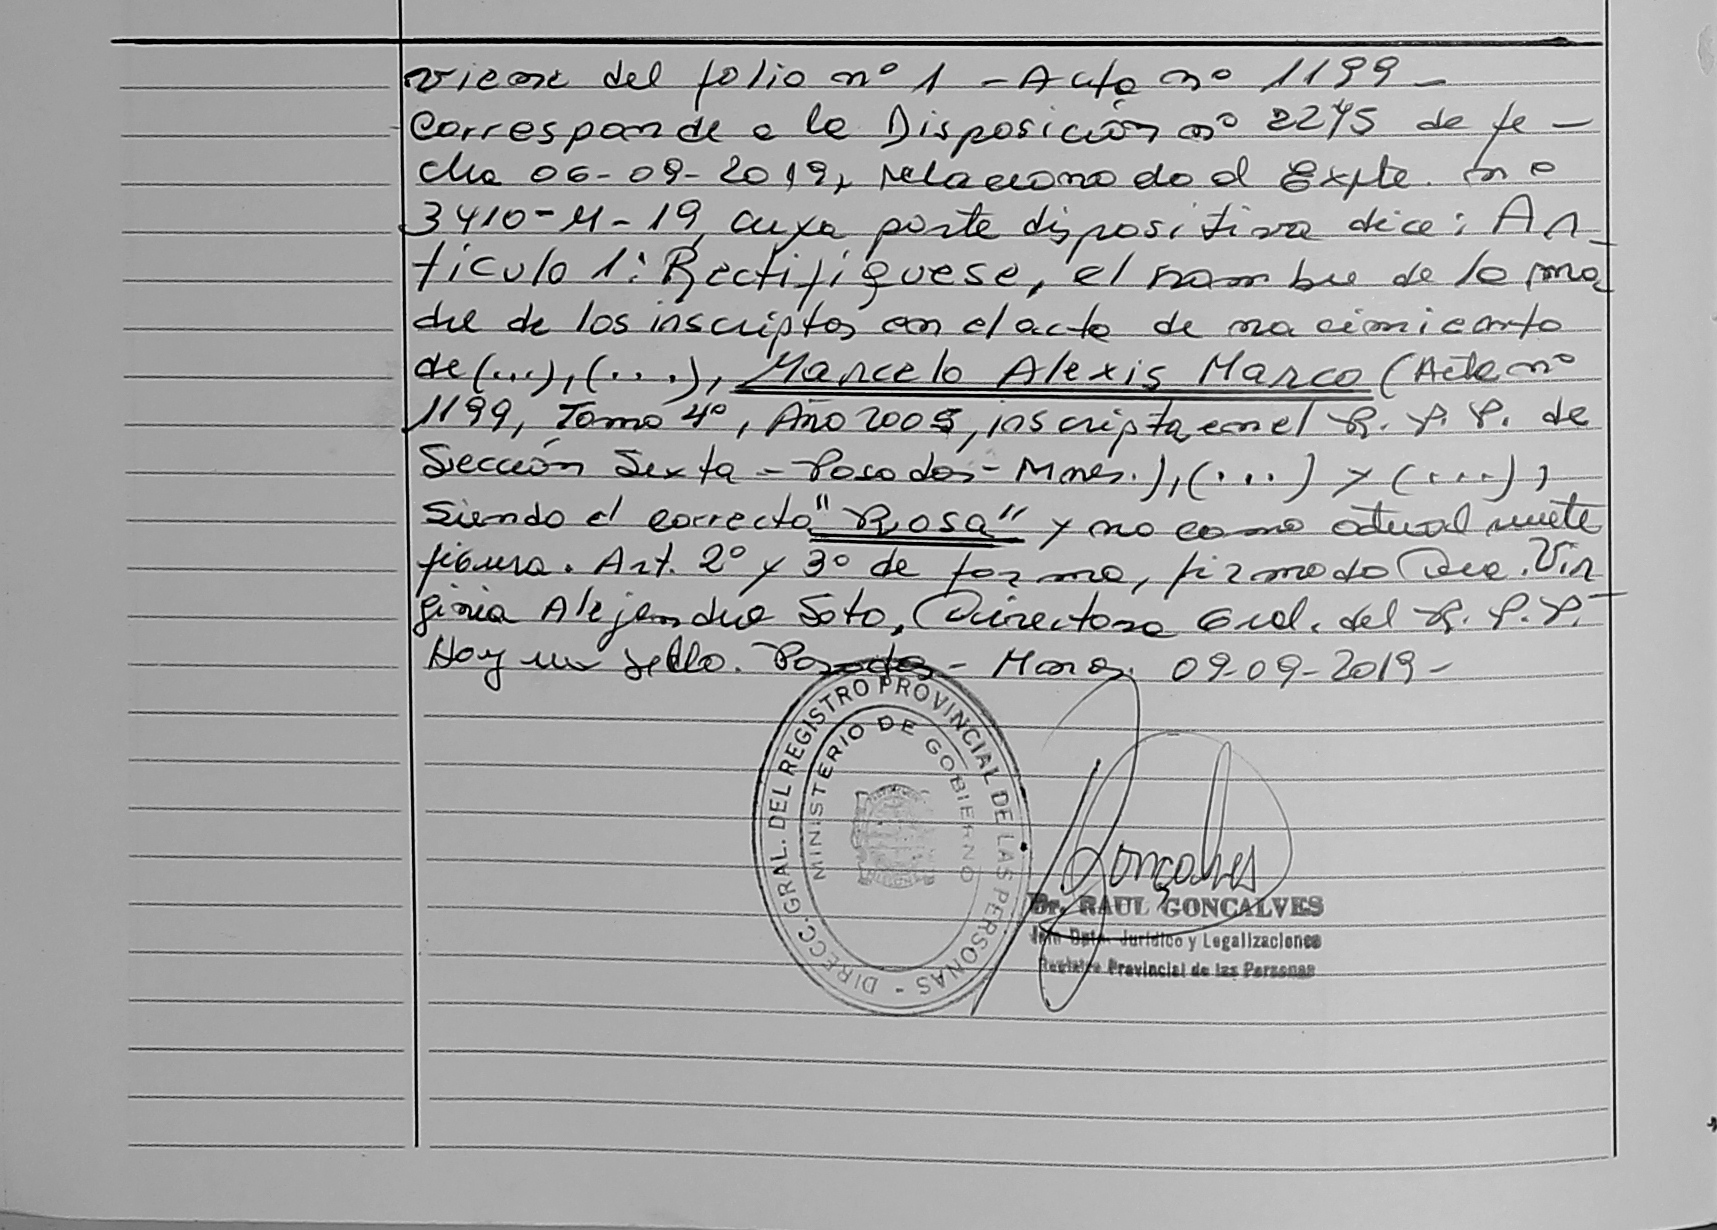 Viene del folio nº 1 - Acta nº 1199 -
Corresponde a la Disposición nº 2275 de fe -
cha 06-09-2019, relacionado al Expte. nº
3410-M-19, cuya parte dispositiva dice: Ar_
tículo 1: Rectifíquese, el nombre de la ma_
dre de los inscriptos en el acta de nacimiento
de (...), (...), Marcelo Alexis Marco (Acta nº
1199, Tomo 4º, Año 2005, inscripta en el R. P. P. de
Sección Sexta - Posadas - Mnes.), (...) y (...),
Siendo el correcto "Rosa" y no como actualmente
figura. Art. 2º y 3º de forma, firmado Dra. Vir_
ginia Alejandra Soto, Directora Gral. del R. P. P.
Hay un sello. Posadas - Mnes. 09-09-2019 -
DIRECC. GRAL. DEL REGISTRO PROVINCIAL DE LAS PERSONAS -
MINISTERIO DE GOBIERNO
Gonçalves
Dr. RAUL GONCALVES
Jefe Dpto. Jurídico y Legalizaciones
Registro Provincial de las Personas